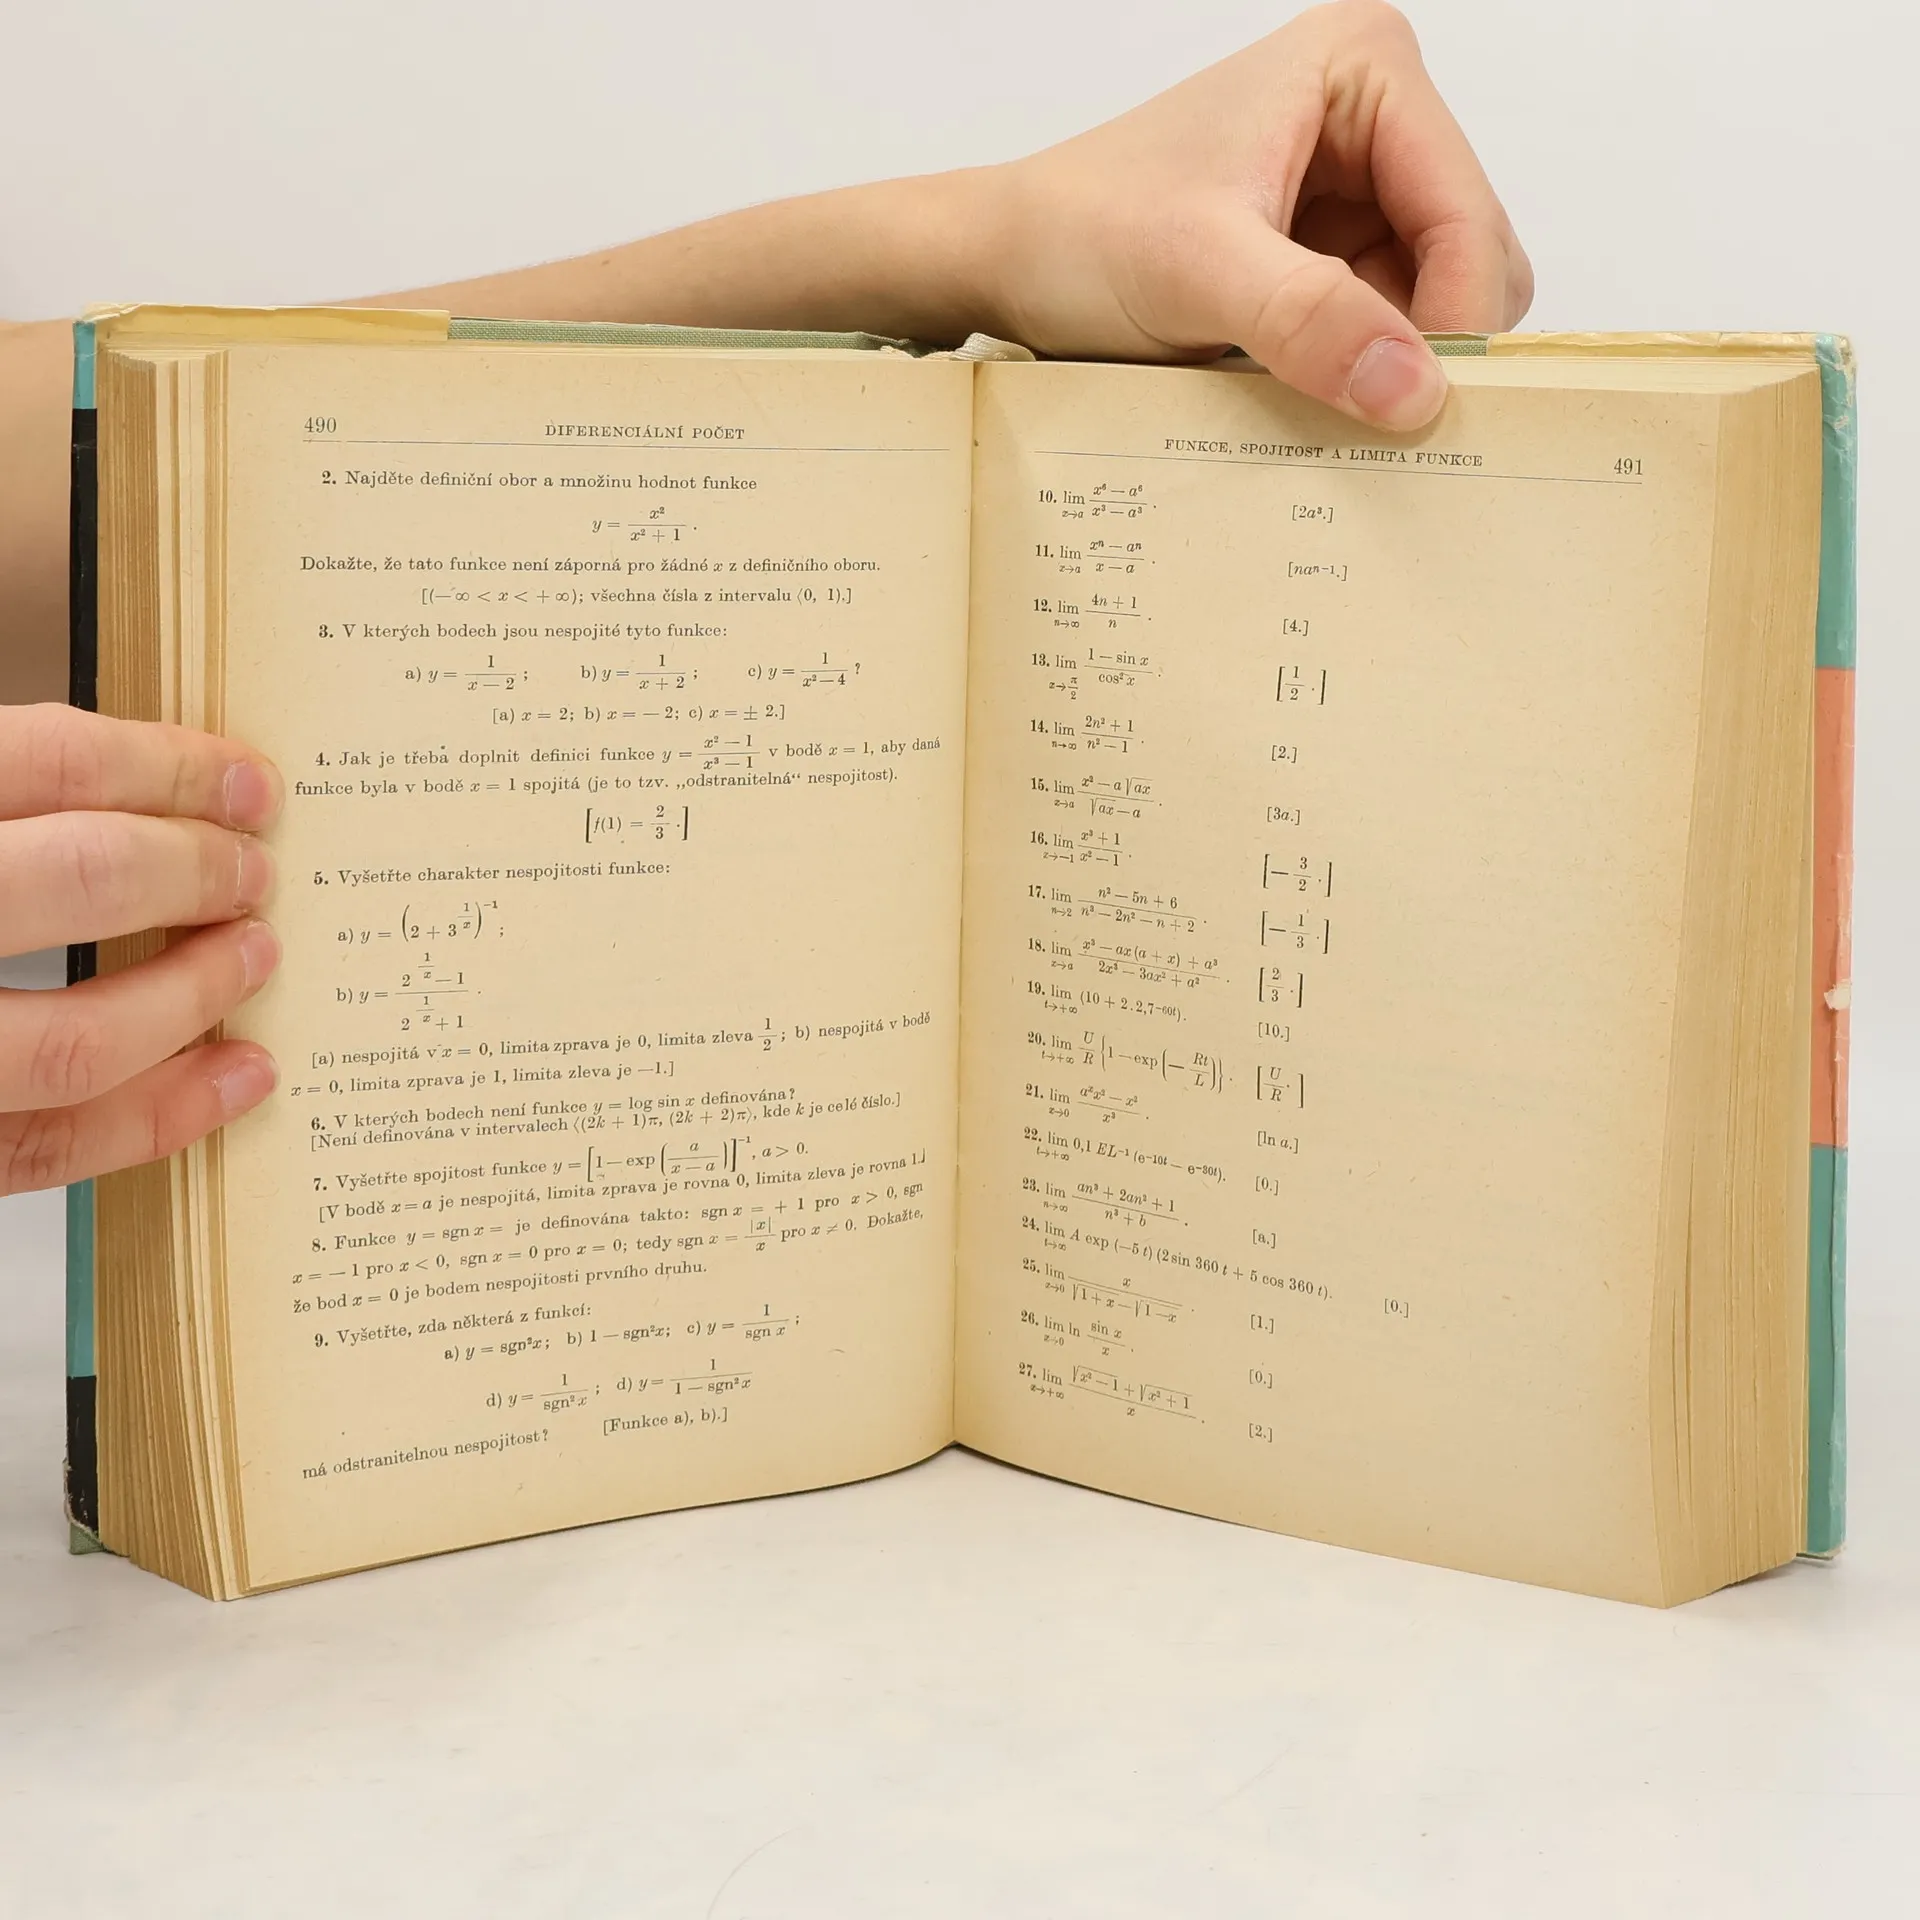 490 DIFERENCIÁLNÍ POČET
2. Najděte definiční obor a množinu hodnot funkce
y = x²/(x² + 1) .
Dokažte, že tato funkce není záporná pro žádné x z definičního oboru.
[(— ∞ < x < + ∞); všechna čísla z intervalu ⟨0, 1).]
3. V kterých bodech jsou nespojité tyto funkce:
a) y = 1/(x — 2) ; b) y = 1/(x + 2) ; c) y = 1/(x² — 4) ?
[a) x = 2; b) x = — 2; c) x = ± 2.]
4. Jak je třeba doplnit definici funkce y = (x² — 1)/(x³ — 1) v bodě x = 1, aby daná
funkce byla v bodě x = 1 spojitá (je to tzv. „odstranitelná“ nespojitost).
[f(1) = 2/3 .]
5. Vyšetřte charakter nespojitosti funkce:
a) y = (2 + 3^(1/x))^(-1) ;
b) y = (2^(1/x) — 1)/(2^(1/x) + 1) .
[a) nespojitá v x = 0, limita zprava je 0, limita zleva 1/2 ; b) nespojitá v bodě
x = 0, limita zprava je 1, limita zleva je —1.]
6. V kterých bodech není funkce y = log sin x definována?
[Není definována v intervalech ⟨(2k + 1)π, (2k + 2)π⟩, kde k je celé číslo.]
7. Vyšetřte spojitost funkce y = [1 — exp (a/(x — a))]^(-1), a > 0.
[V bodě x = a je nespojitá, limita zprava je rovna 0, limita zleva je rovna 1.]
8. Funkce y = sgn x = je definována takto: sgn x = + 1 pro x > 0, sgn
x = — 1 pro x < 0, sgn x = 0 pro x = 0; tedy sgn x = |x|/x pro x ≠ 0. Dokažte,
že bod x = 0 je bodem nespojitosti prvního druhu.
9. Vyšetřte, zda některá z funkcí:
a) y = sgn²x; b) 1 — sgn²x; c) y = 1/(sgn x) ;
d) y = 1/(sgn² x) ; d) y = 1/(1 — sgn² x)
má odstranitelnou nespojitost? [Funkce a), b).]
FUNKCE, SPOJITOST A LIMITA FUNKCE 491
10. lim x→a (x⁶ — a⁶)/(x³ — a³) . [2a³.]
11. lim x→a (xⁿ — aⁿ)/(x — a) . [naⁿ⁻¹.]
12. lim n→∞ (4n + 1)/n . [4.]
13. lim x→π/2 (1 — sin x)/(cos² x) . [1/2 .]
14. lim n→∞ (2n² + 1)/(n² — 1) . [2.]
15. lim x→a (x² — a √ax)/(√ax — a) . [3a.]
16. lim x→—1 (x³ + 1)/(x² — 1) . [— 3/2 .]
17. lim n→2 (n² — 5n + 6)/(n³ — 2n² — n + 2) . [— 1/3 .]
18. lim x→a (x³ — ax(a + x) + a³)/(2x³ — 3ax² + a²) . [2/3 .]
19. lim t→+∞ (10 + 2 . 2,7⁻⁶⁰ᵗ). [10.]
20. lim t→+∞ U/R {1 — exp (— Rt/L)} . [U/R .]
21. lim x→0 (aˣx² — x²)/x³ . [ln a.]
22. lim t→+∞ 0,1 EL⁻¹ (e⁻¹⁰ᵗ — e⁻³⁰ᵗ). [0.]
23. lim n→∞ (an³ + 2an² + 1)/(n³ + b) . [a.]
24. lim t→∞ A exp (—5 t) (2 sin 360 t + 5 cos 360 t). [0.]
25. lim x→0 x/(√1 + x — √1 — x) . [1.]
26. lim x→0 ln (sin x)/x . [0.]
27. lim x→+∞ (√x² — 1 + √x² + 1)/x . [2.]